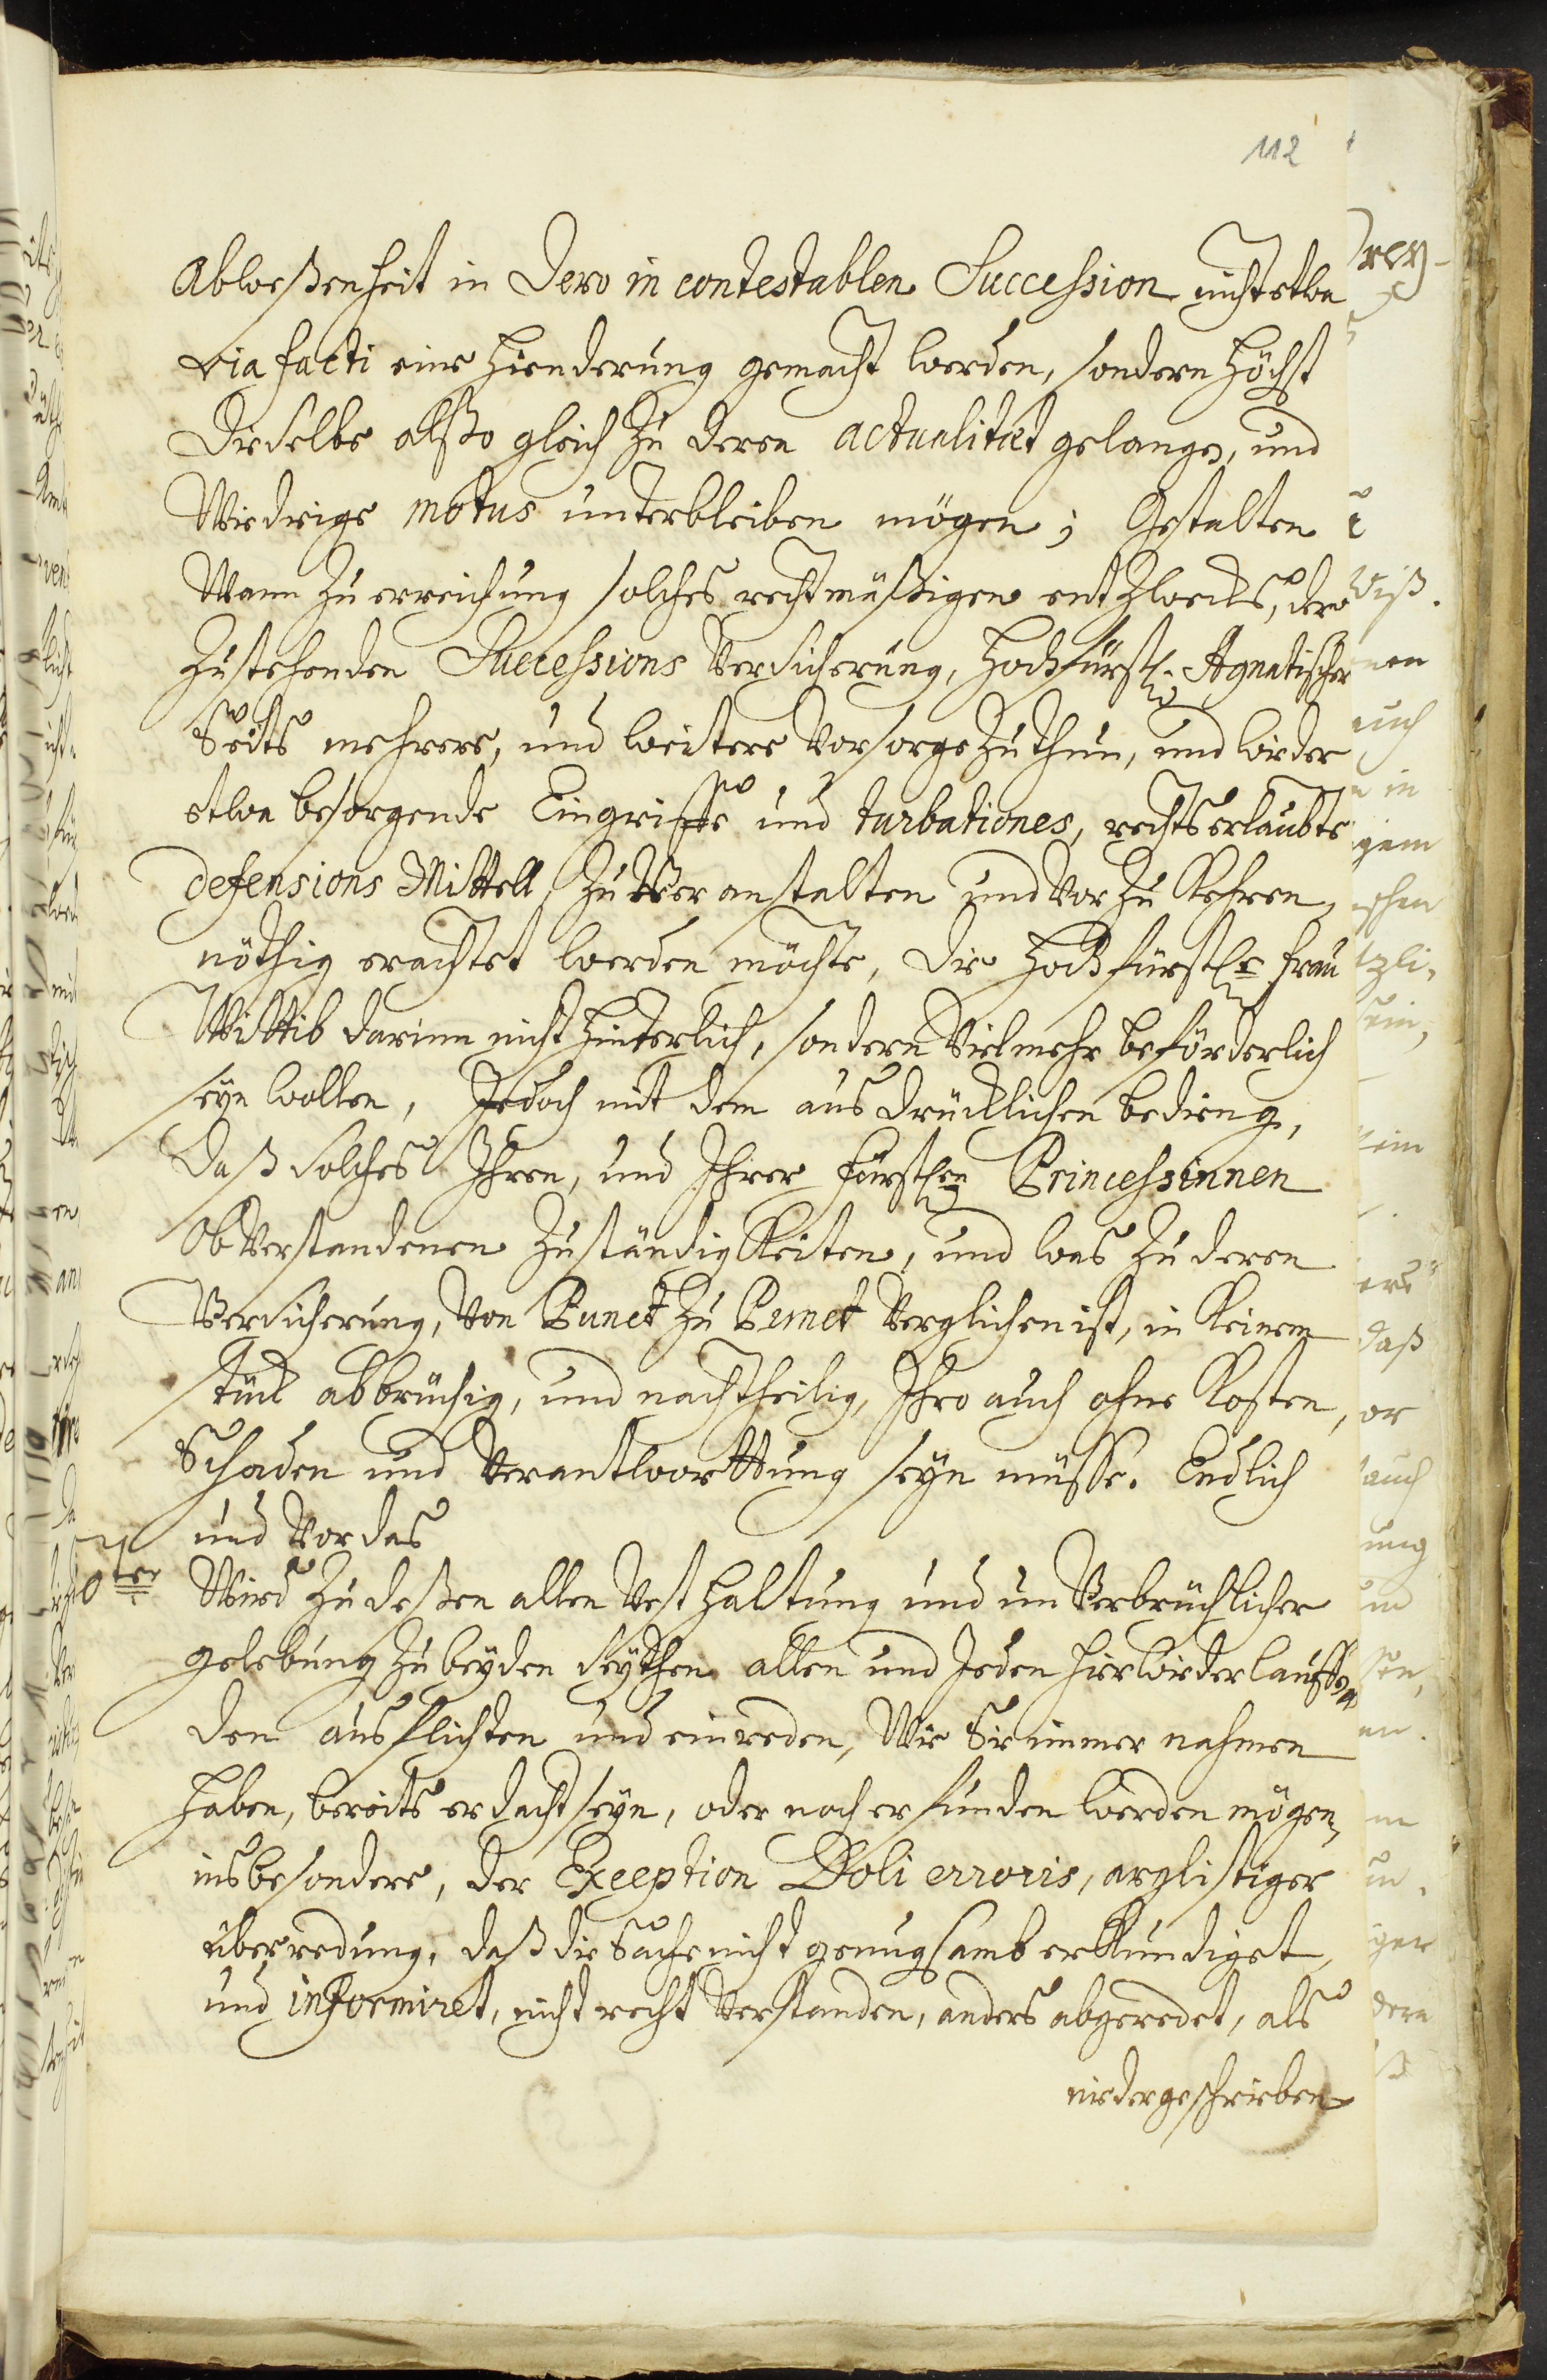 112
Abweßenheit in Dero in contestablen Succession nicht etwa
via facti eine Hinderung gemacht werden, sondern Höchst
Dieselbe alßo gleich zu deren actualitæt gelange, und
Wiedrige motus unterbleiben mögen; Gestalten
Wann zu erreichung solches rechtmäßigen entzwecks, dero
zustehenden Successions Versicherung, Hochfürstl. Agnatischer
Seits mehrere, und weitere Vorsorge zu thun, und wieder
etwa besorgende Eingriffe und turbationes, rechtserlaubte
defensions Mittell, zu Veranstalten und Vor zu Kehren,
nöthig erachtet werden möchte, die Hochfürstle Frau
Wittib darinn nicht hinderlich, sondern Vielmehr beförderlich
seyn wollen, Jedoch mit dem ausdrücklichen beding,
daß solches Ihren, und Ihrer Fürstlen Princessinnen
Ob Verstandenen Zuständigkeiten, und was zu deren
Versicherung, Von Punct zu Punct Verglichen ist, in keinem
stück abbrüchig, und nachtheilig, Ihro auch ohne Kosten,
Schaden und Verantworttung seyn müsse. Endlich
und Vor das
10ter Wird zu deßen allen Vest haltung und un Verbrüchlicher
gelebung zu beyden seythen allen und Jeden hierwieder lauffen
den ausflichten und einreden, Wie Sie immer nahmen
haben, bereits erdacht seyn, oder noch erfunden werden mögen,
insbesondere, der Exception Doli erroris, arglistiger
überredung, daß die Sache nicht genugsamb erkundiget,
und informiret, nicht recht Verstanden, anders abgeredet, als
niedergeschrieben